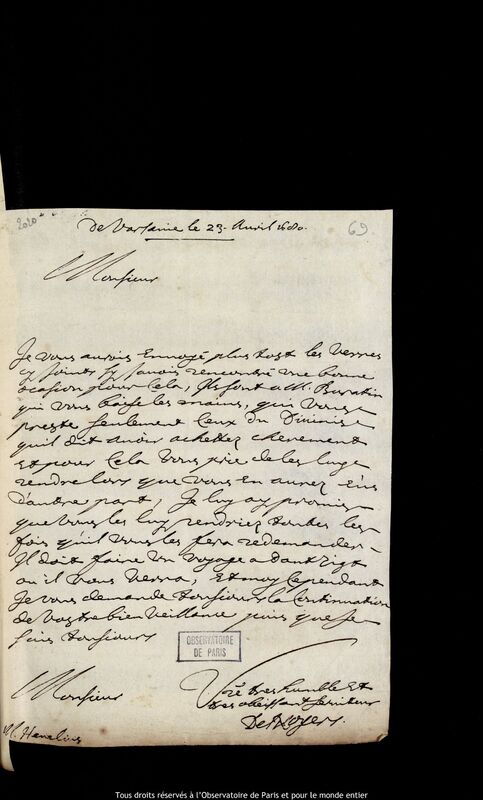 2020
69
De Varsavie le 23. Avril 1680.
Monsieur
Je vous aurois Envoyé plus tost les Verres
cy joints sy javois rencontré une bonne
ocasion pour cela, Ils sont a Mr. Buratin
qui vous baise les mains, qui vous
preste seulement Ceux du Divinis
quil dit avoir achettez cherement
Et pour Cela vous prie de les luy
rendre lors que vous En aurez Eus
d'autre part, Je luy ay promis
que vous les luy rendriez toutes les
fois quil vous les fera redemander
Il doit faire Un voyage a dantzigt
ou il vous verra, Et moy Cependant
Je vous demande tousjours la Continuation
de Vostre bien Veillance puis que Je
suis tousjours
Monsieur
Vre tres humble Et
tres obeissant serviteur
DesNoyers.
Mr. Hevelius
OBSERVATOIRE
DE PARIS
Tous droits réservés à l'Observatoire de Paris et pour le monde entier